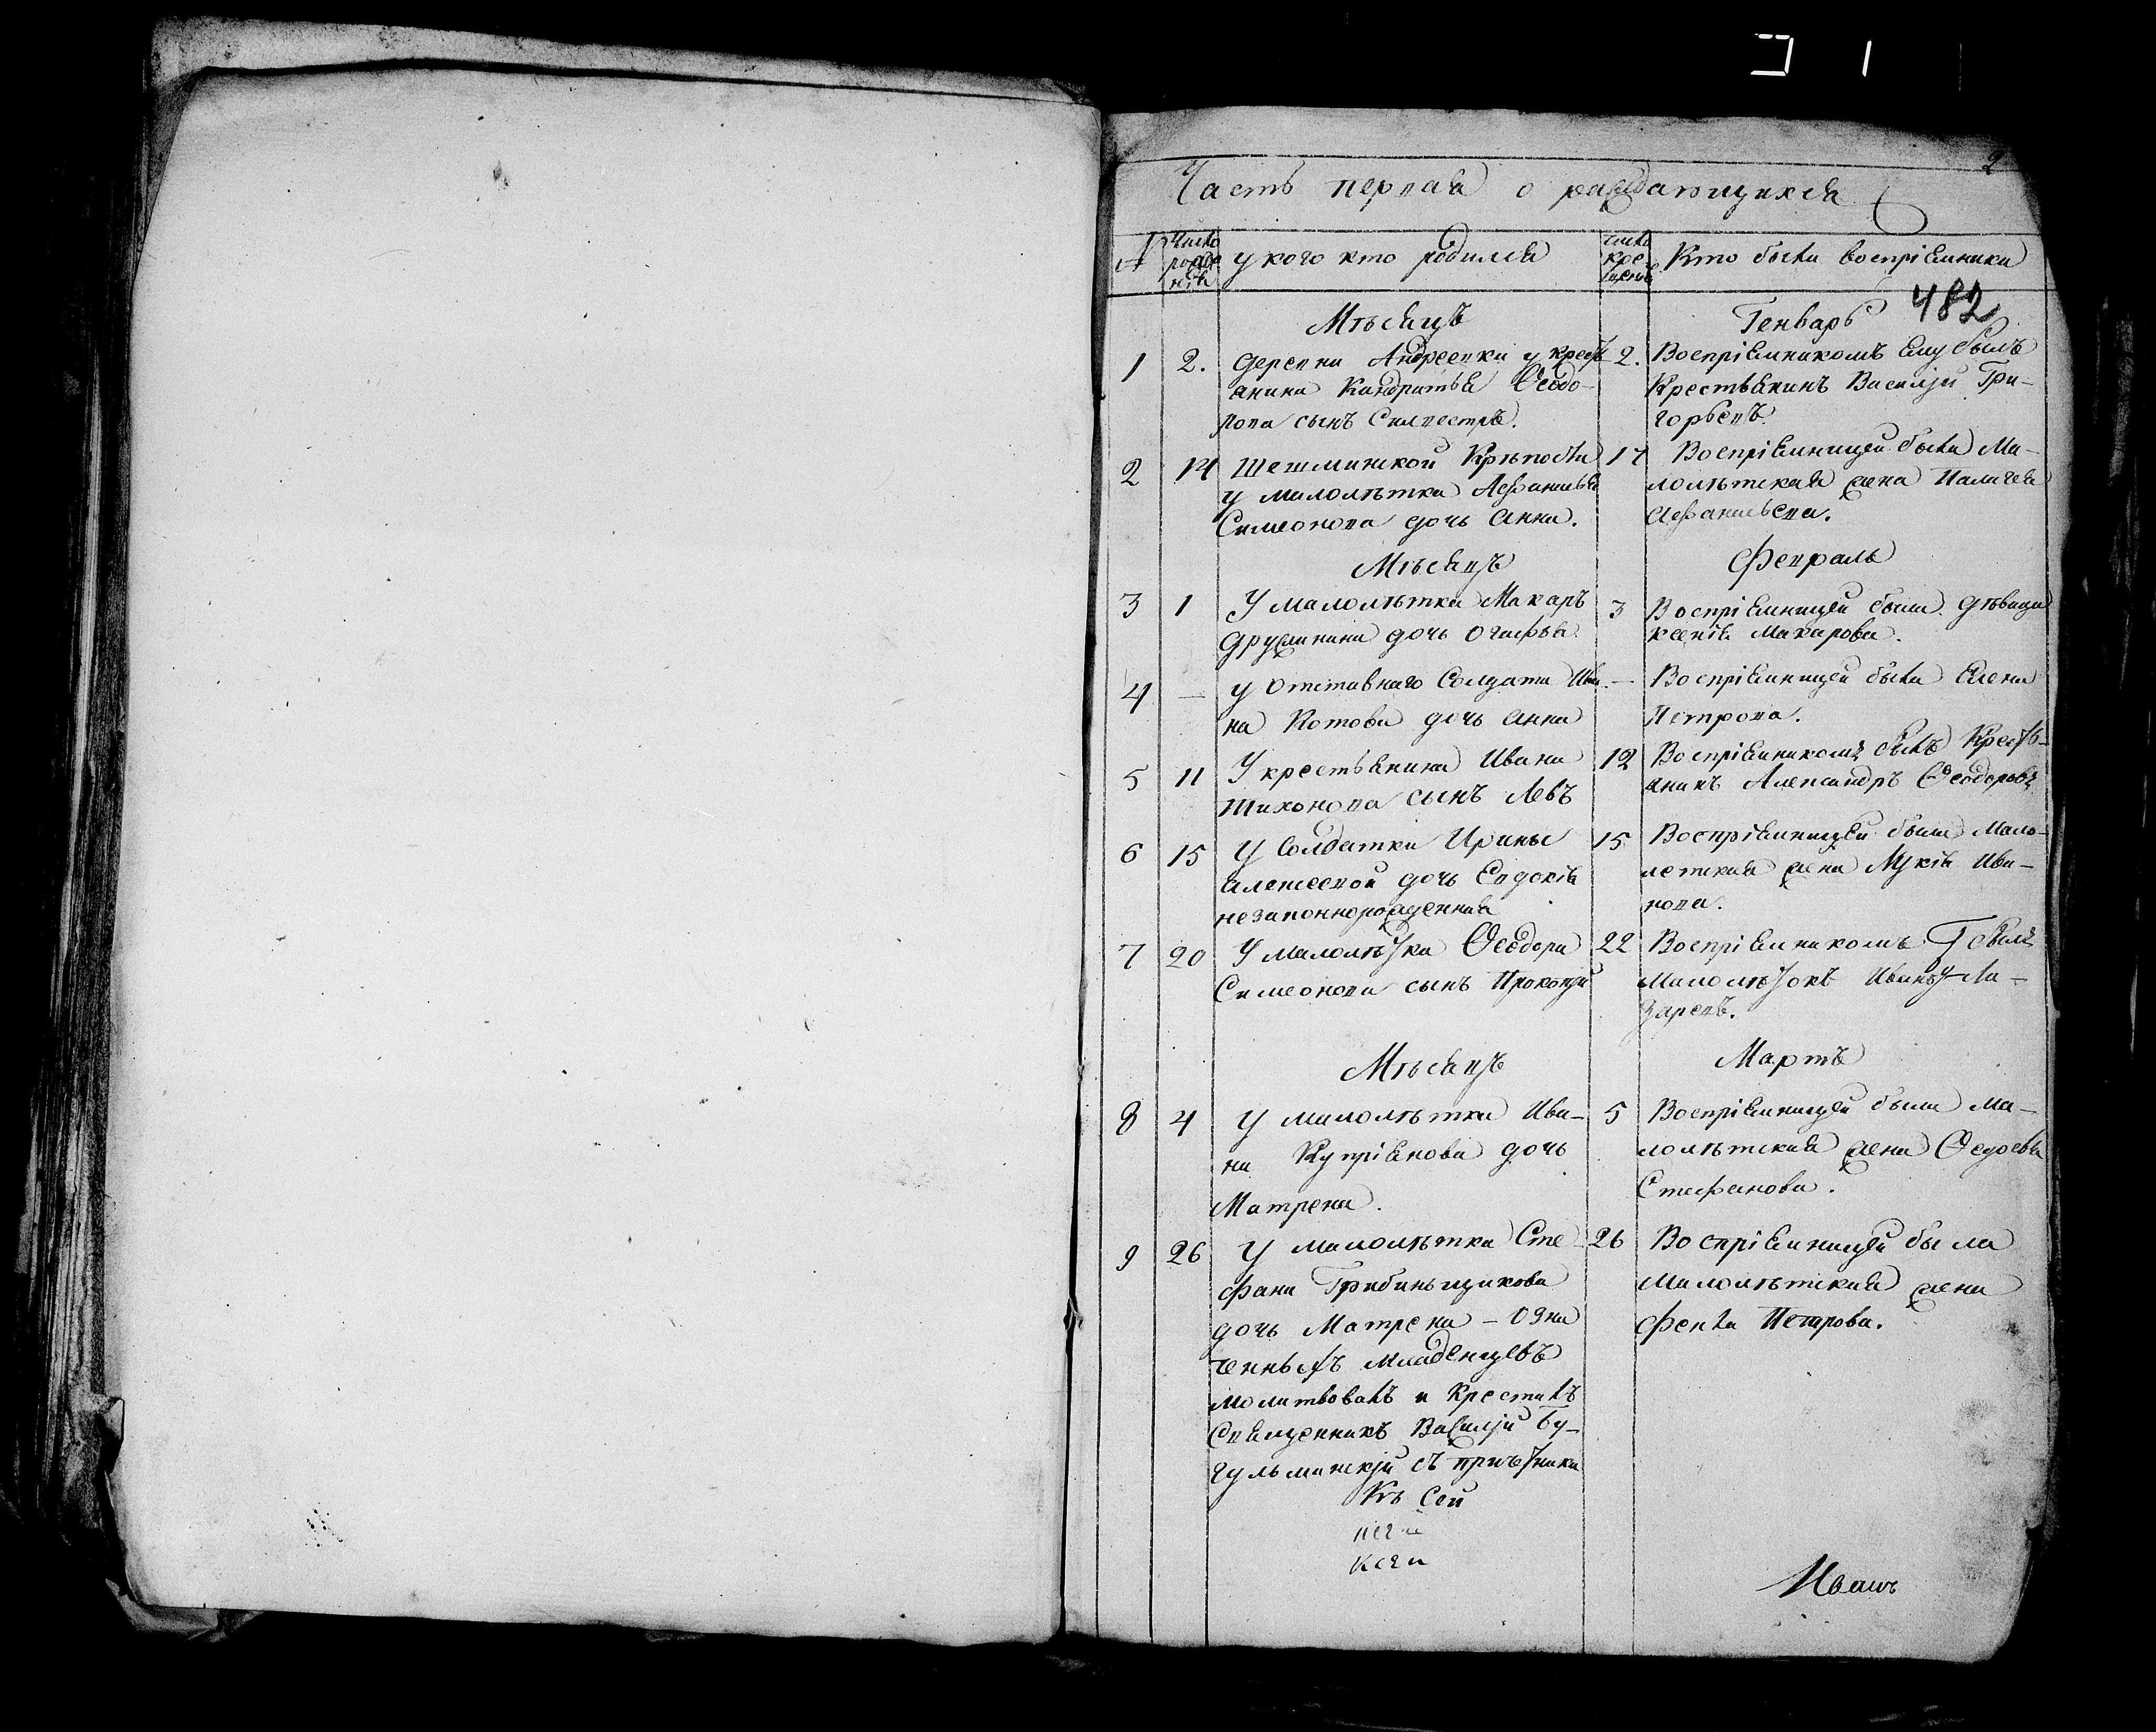 2
Часть первая о раждающихся
№ Число рожденія у кого кто родился число крещенія Кто были воспріемники
482
Мѣсяцъ Генварь
1 2. деревни Андреевки у крестьянина Кандратья Ѳеодорова сынъ Силвестръ. 2. Воспріемникомъ ему былъ Крестьянинъ Василій Григорьевъ.
2 14 Шешминской Крѣпости у малолѣтка Афанасья Симеонова дочь Анна. 17 Воспріемницей была Малолѣтская жена Палагея Афанасьева.
Мѣсяцъ Февраль
3 1 У малолѣтка Макаръ Дружинина дочь Огафья. 3 Воспріемницей была дѣвица ксенія Макарова.
4 — у Отставнаго Солдата Ивана Котова дочь Анна — Воспріемницей была Елена Петрова.
5 11 У крестьянина Ивана Тихонова сынъ Левъ 12 Воспріемникомъ былъ Крестьянинъ Александръ Ѳеодоровъ
6 15 У Солдатки Ирины Алексеевой дочь Евдокія незаконнорожденная 15 Воспріемницей была Малолетская жена Лукія Иванова.
7 20 У малолѣтка Ѳеодора Симеонова сынъ Прокопій 22 Воспріемникомъ былъ Малолѣтокъ Иванъ Лазаревъ.
Мѣсяцъ Мартъ
8 4 У малолѣтка Ивана Купріянова дочь Матрена. 5 Воспріемницей была Малолѣтская жена Ѳедосья Стефанова.
9 26 У малолѣтка Стефана Грибаньщикова дочь Матрена – Означенныхъ младенцевъ молитвовалъ и Крестилъ Священникъ Василій Бугульминскій съ причетники 26 Воспріемницей была Малолѣтская жена Фекла Петрова.
Къ Сей
Иванъ